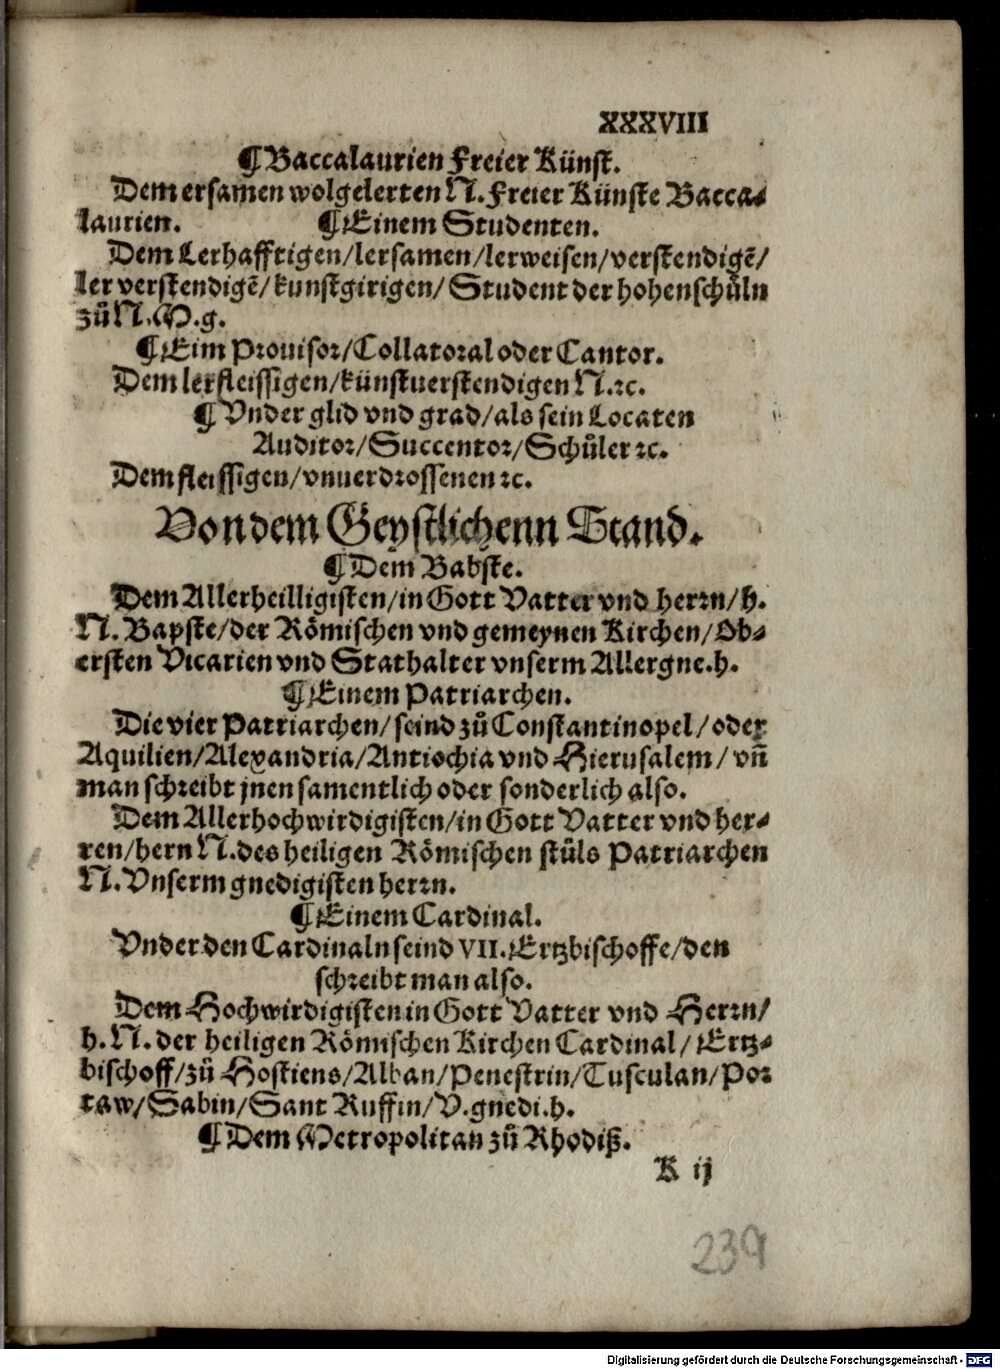 XXXVIII
¶ Baccalaurien Freier Künst.
Dem ersamen wolgelerten N. Freier Künste Bacca-
laurien. ¶ Einem Studenten.
Dem Lerhafftigen/lersamen/lerweisen/verstendigẽ/
ler verstendigẽ/kunstgirigen/Student der hohenschůln
zů N. M.g.
¶ Eim Prouisor/Collatoral oder Cantor.
Dem lerfleissigen/künstuerstendigen N.ꝛc.
¶ Vnder glid vnd grad/als sein Locaten
Auditor/Succentor/Schůler ꝛc.
Dem fleissigen/vnuerdrossenen ꝛc.
Von dem Geystlichenn Stand.
¶ Dem Babste.
Dem Allerheilligisten/in Gott Vatter vnd herrn/h.
N. Bapste/der Römischen vnd gemeynen Kirchen/Ob-
ersten Vicarien vnd Stathalter vnserm Allergne.h.
¶ Einem Patriarchen.
Die vier Patriarchen/seind zů Constantinopel/oder
Aquilien/Alexandria/Antiochia vnd Hierusalem/vñ
man schreibt jnen samentlich oder sonderlich also.
Dem Allerhochwirdigisten/in Gott Vatter vnd her-
ren/hern N. des heiligen Römischen stůls Patriarchen
N. Vnserm gnedigisten herrn.
¶ Einem Cardinal.
Vnder den Cardinaln seind VII. Ertzbischoffe/den
schreibt man also.
Dem Hochwirdigisten in Gott Vatter vnd Herrn/
h. N. der heiligen Römischen Kirchen Cardinal/Ertz-
bischoff/zů Hostiens/Alban/Penestrin/Tusculan/Por
taw/Sabin/Sant Ruffin/V.gnedi.h.
¶ Dem Metropolitan zů Rhodiß.
K ij
239
Digitalisierung gefördert durch die Deutsche Forschungsgemeinschaft - DFG